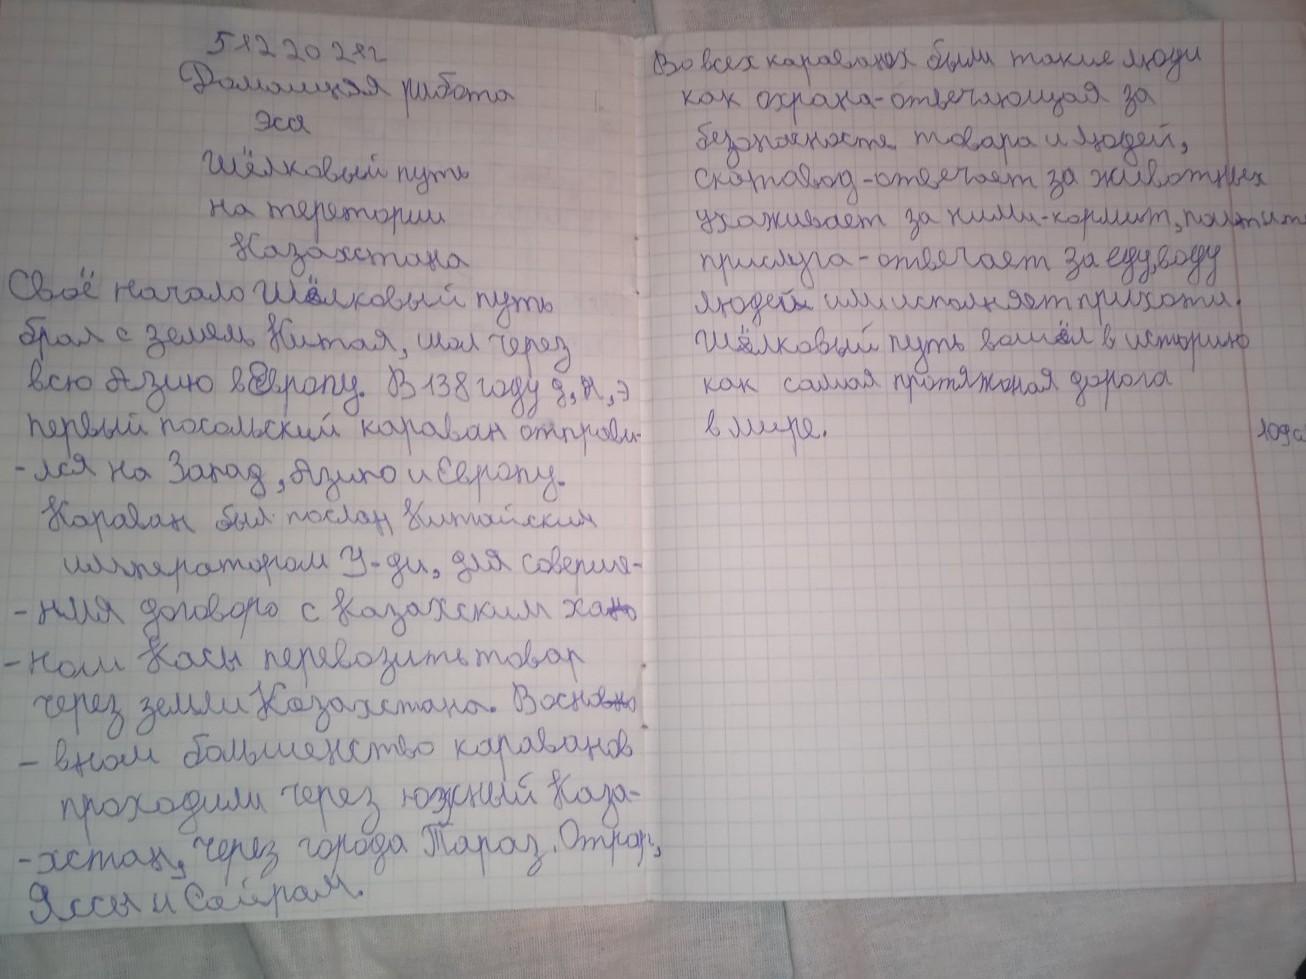 5 12 2021г
Домашняя работа
Эсе
Шёлковый путь
на теретории
Казахстана
Своё начало Шёлковый путь
брал с земель Китая, шол через
всю Азию в Европу. В 138 году д,н,э
первый посольский караван отправи-
-лся на Запад, Азию и Европу.
Караван был послан Китайским
императором У-ди, для соверше-
-ния договора с Казахским ха
-ном Касы перевозить товар
через земли Казахстана. В осно
-вном большенство караванов
проходили через южный Каза-
-хстан, через города Тараз, Отрар,
Яссы и Сайрам.
Во всех караванах были такие люди
как охрана-отвечающая за
безопасность товара и людей,
скотовод-отвечает за животных
ухаживает за ними-кормит,
прислуга-отвечает за еду, воду
людей или исполняет прихоти.
Шёлковый путь вошёл в историю
как самая протяжоная дорога
в мире.